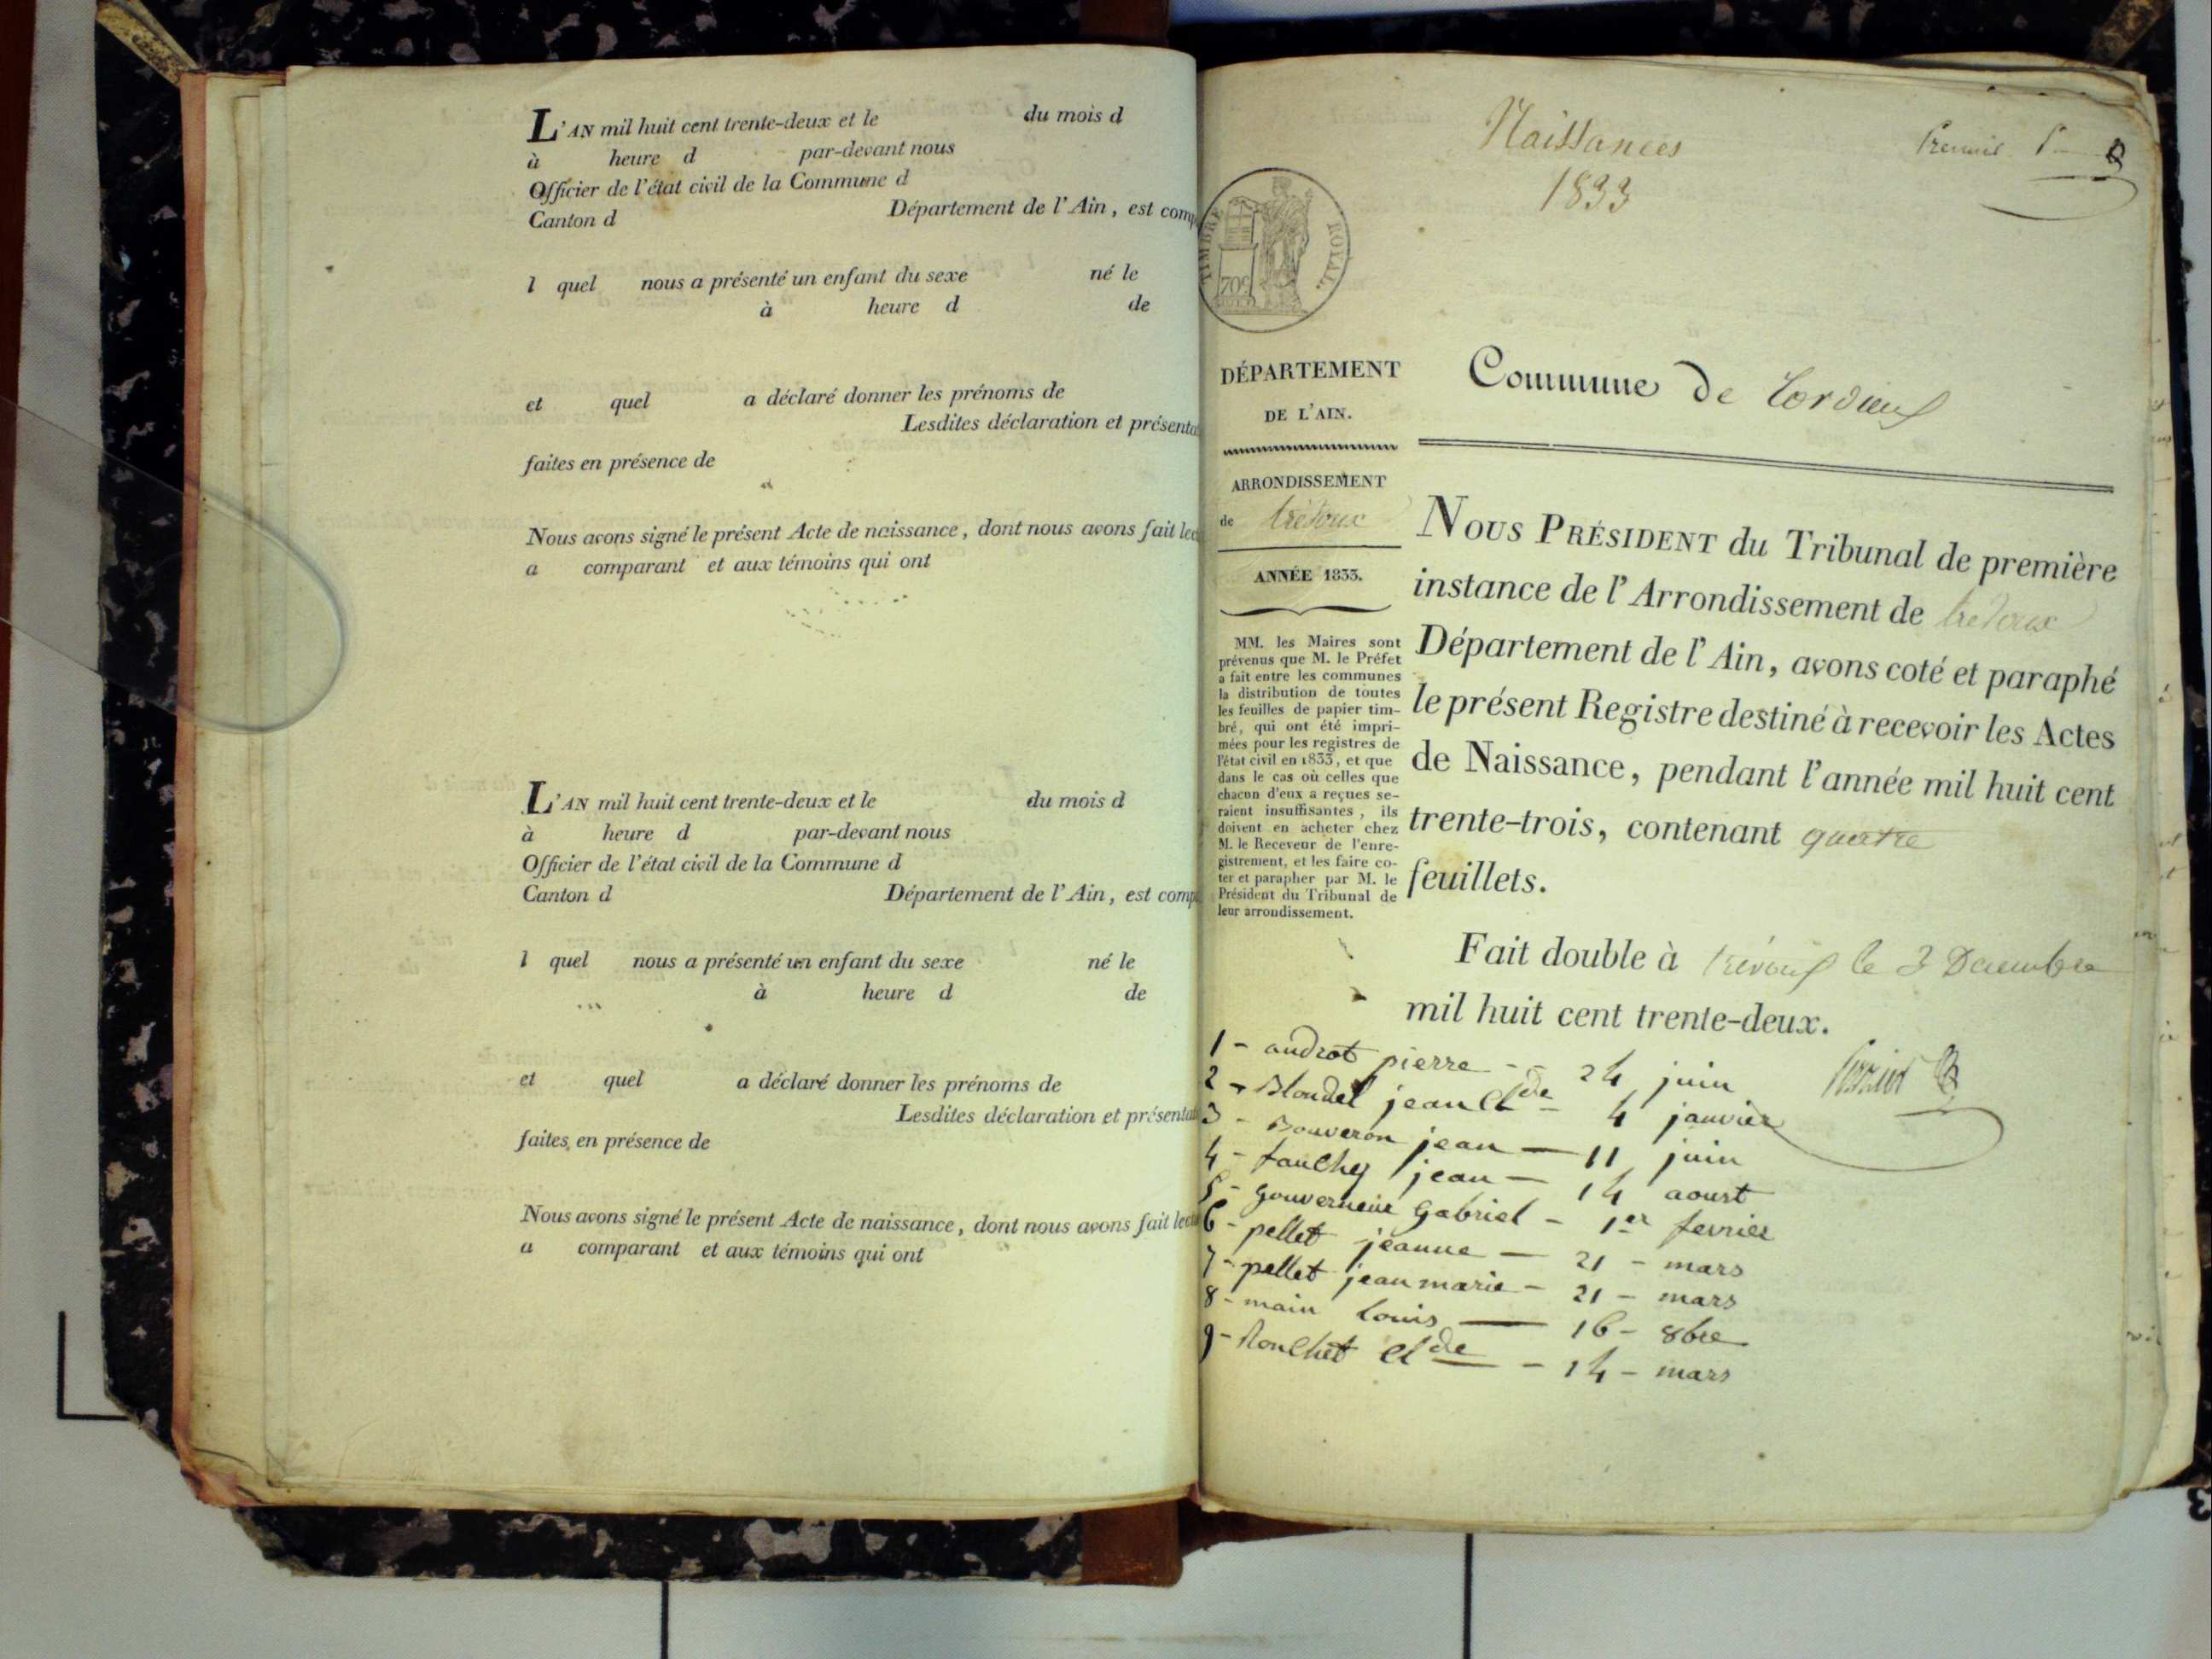 L'AN mil huit cent trente-deux et le du mois d
à heure d par-devant nous
Officier de l'état civil de la Commune d
Canton d Département de l'Ain, est comp
l quel nous a présenté un enfant du sexe né le
à heure d de
et quel a déclaré donner les prénoms de
Lesdites déclaration et présenta
faites en présence de
Nous avons signé le présent Acte de naissance, dont nous avons fait lec
a comparant et aux témoins qui ont
L'AN mil huit cent trente-deux et le du mois d
à heure d par-devant nous
Officier de l'état civil de la Commune d
Canton d Département de l'Ain, est comp
l quel nous a présenté un enfant du sexe né le
à heure d de
et quel a déclaré donner les prénoms de
Lesdites déclaration et présentat
faites en présence de
Nous avons signé le présent Acte de naissance, dont nous avons fait lectu
a comparant et aux témoins qui ont
Naissances
1833
Premier
TIMBRE ROYAL
70c
DÉPARTEMENT
DE L'AIN.
ARRONDISSEMENT
de trévoux
ANNÉE 1833.
MM. les Maires sont
prévenus que M. le Préfet
a fait entre les communes
la distribution de toutes
les feuilles de papier tim-
bré, qui ont été impri-
mées pour les registres de
l'état civil en 1833, et que
dans le cas où celles que
chacun d'eux a reçues se-
raient insuffisantes, ils
doivent en acheter chez
M. le Receveur de l'enre-
gistrement, et les faire co-
ter et parapher par M. le
Président du Tribunal de
leur arrondissement.
Commune de Cordieux
NOUS PRÉSIDENT du Tribunal de première
instance de l'Arrondissement de trévoux
Département de l'Ain, avons coté et paraphé
le présent Registre destiné à recevoir les Actes
de Naissance, pendant l'année mil huit cent
trente-trois, contenant quatre
feuillets.
Fait double à trévoux le 3 Decembre
mil huit cent trente-deux.
1 - androt pierre - - 24 juin
2 - Blondel jean Cl de - 4 janvier
3 - Bouveron jean - 11 juin
4 - fauchy jean - 14 aoust
5 - gouverneur Gabriel - 1er fevrier
6 - pellet jeanne - 21 - mars
7 - pellet jean marie - 21 - mars
8 - main Louis - 16 - 8bre
9 - Ronchet Cl de - 14 - mars